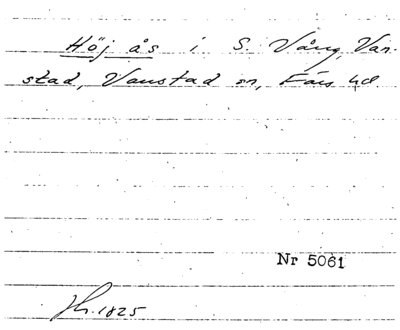 Höj ås i S. Vång, Van-
stad, Vanstad sn, Färs hd
Nr 5061
1825